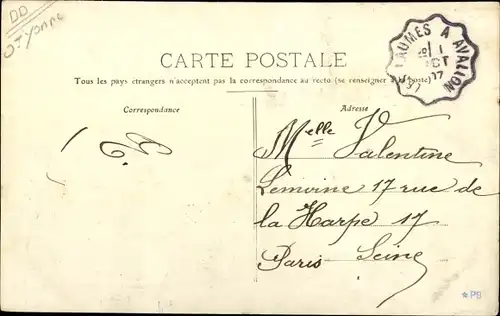 DD
DTYONNE
LES LAUMES A AVALLON
1
OCT
07
CARTE POSTALE
Tous les pays étrangers n'acceptent pas la correspondance au recto (se renseigner à la poste)
Correspondance
Adresse
Melle Valentine
Lemoine 17 rue de
la Harpe 17
Paris - Seine
*PB